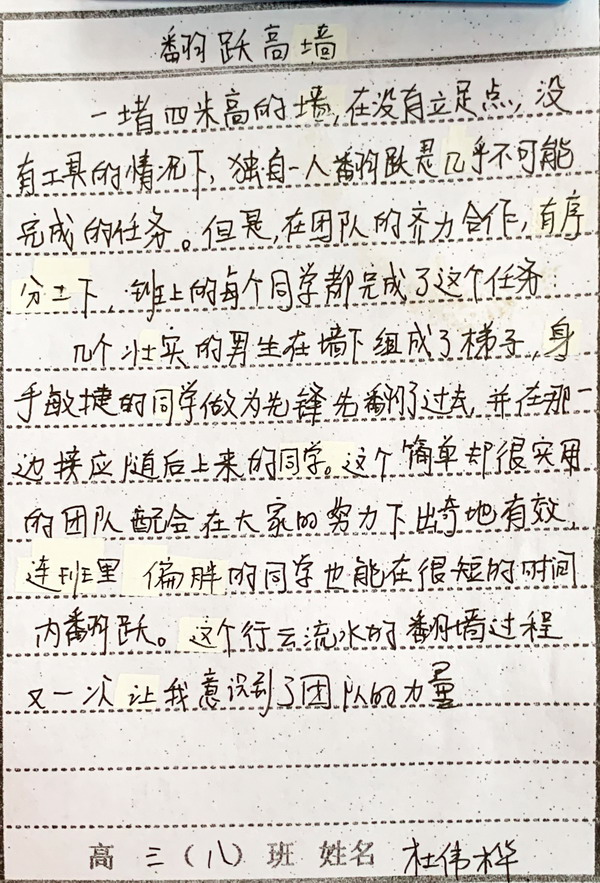 翻跃高墙
一堵四米高的墙,在没有立足点,没
有工具的情况下,独自一人翻跃是几乎不可能
完成的任务。但是,在团队的齐力合作,有序
分工下,班上的每个同学都完成了这个任务.
几个壮实的男生在墙下组成了梯子,身
手敏捷的同学做为先锋先翻了过去,并在那一
边接应随后上来的同学。这个简单却很实用
的团队配合在大家的努力下出奇地有效,
连班里偏胖的同学也能在很短的时间
内翻跃。这个行云流水的翻墙过程
又一次让我意识到了团队的力量
高三(八)班 姓名 杜伟桦